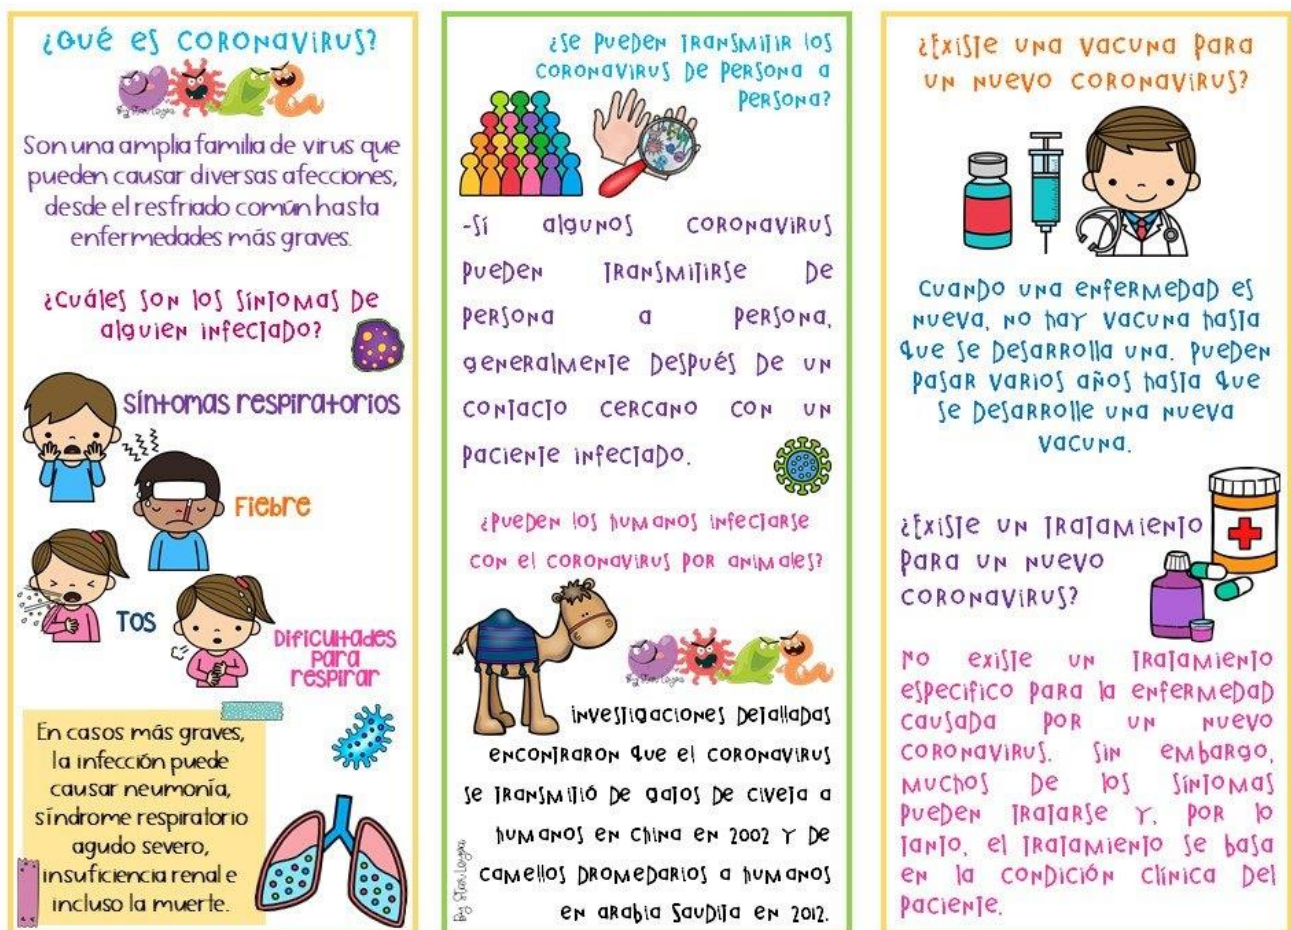 ¿Qué es CORONAVIRUS?
Son una amplia familia de virus que
pueden causar diversas afecciones,
desde el resfriado común hasta
enfermedades más graves.
¿Cuáles son los síntomas de
alguien infectado?
síntomas respiratorios
Fiebre
Tos
Dificultades
para
respirar
En casos más graves,
la infección puede
causar neumonía,
síndrome respiratorio
agudo severo,
insuficiencia renal e
incluso la muerte.
¿Se pueden transmitir los
coronavirus de persona a
persona?
-Sí algunos coronavirus
pueden transmitirse de
persona a persona,
generalmente después de un
contacto cercano con un
paciente infectado.
¿Pueden los humanos infectarse
con el coronavirus por animales?
Investigaciones detalladas
encontraron que el coronavirus
se transmitió de gatos de civeta a
humanos en China en 2002 y de
camellos dromedarios a humanos
en Arabia Saudita en 2012.
¿Existe una vacuna para
un nuevo coronavirus?
Cuando una enfermedad es
nueva, no hay vacuna hasta
que se desarrolla una. Pueden
pasar varios años hasta que
se desarrolle una nueva
vacuna.
¿Existe un tratamiento
para un nuevo
coronavirus?
No existe un tratamiento
especifico para la enfermedad
causada por un nuevo
coronavirus. Sin embargo,
muchos de los síntomas
pueden tratarse y, por lo
tanto, el tratamiento se basa
en la condición clínica del
paciente.